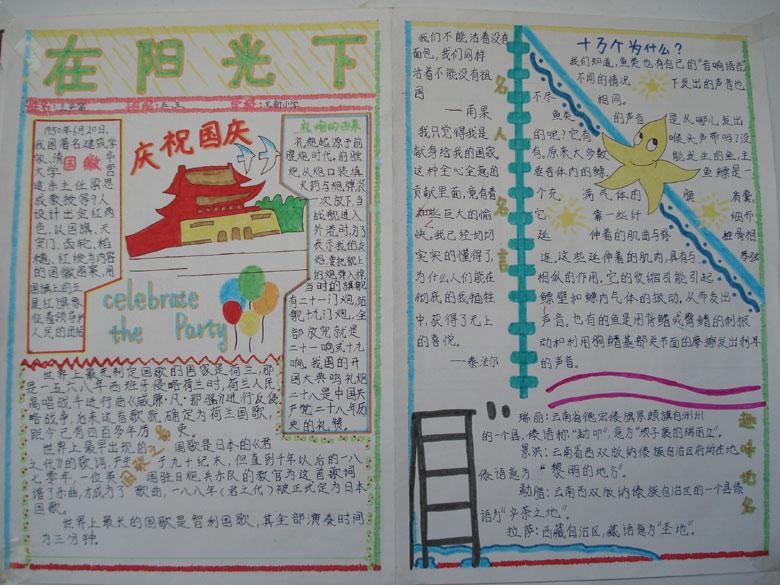 在阳光下
1950年6月20日,
我国著名建筑学
家、清华
大学营
建系主任梁思
成教授等9人
设计出金红两
色,以国旗,天
安门、齿轮,稻
穗、红绫为内容
的国徽图案,用
国旗上的五
星红旗象
征着领导
人民的
国徽
庆祝国庆
celebrate
the Party
礼炮的由来
礼炮起源于前
膛炮时代。前膛
炮从炮口装填
火药与炮弹装
一次放下,当
战舰进入
外港时,为了
表示我的友
当时的旗舰
有二十一门炮,
九十九门炮,全
部放完就是
二十一响或十九
响,我国的开
国大典鸣礼炮
二十八是中国共
产党二十八年历
史的礼赞。
世界上最先制定国歌的国家是荷兰,那
是一五六八年西班牙侵略荷兰时,荷兰人民
高唱战斗进行曲《威廉·凡·那骚》进行反侵
略战争,后来这首歌就确定为荷兰国歌,
距今已有四百多年历史。
世界上最早出现的国歌是日本的《君
之代》的歌词,产生于九十纪末,但直到千年以后的一八
七零年,一位英国驻日炮兵乐队的教官为这首歌词
谱了亦曲,才成为了歌曲,一八八八年《君之代》被正式定为日本
国歌。
世界上最长的国歌是智利国歌,其全部演奏时间
为三分钟。
我们不能活着没有
面包,我们同样
活着不能没有祖
国
——雨果
我只觉得我是
献身给我的国家。
这种全心全意的
贡献里面,竟有着
些巨大的愉
快。我已经切切
实实的懂得了,
为什么人们能在
彻底的自我牺牲
中,获得了无上
的喜悦。
——泰戈尔
名人名言
十万个为什么?
我们知道,鱼类也有自己的“音响语言”
不同的情况下发出的声音也
不尽相同。
鱼类的声音是从哪儿发出
的呢?它有喉头声带吗?没
有。原来大多数能发生的鱼,主
要靠体内的鳔。鱼鳔是一
个充满气体的膜质囊,
它靠一些纤细而
延伸着的肌曲与脊椎骨相
连,这些延伸着的肌肉,具有与琴弦
相似的作用。它的收缩可能引起
鳔壁和鳔内气体的振动,从而发出
声音。也有的鱼是用背鳍或臀鳍的刺振
动和利用胸鳍基部关节面的摩擦发出刺耳
的声音。
趣味地名
瑞丽:云南省德宏傣族景颇族自治州
的一个县,傣语称“勐卯”,意为
景洪:云南省西双版纳傣族自治区府所在地。
傣语意为“黎明的地方”。
勐腊:云南西双版纳傣族自治区的一个县傣
语为“产茶之地”。
拉萨:西藏自治区,藏语意为“圣地”。